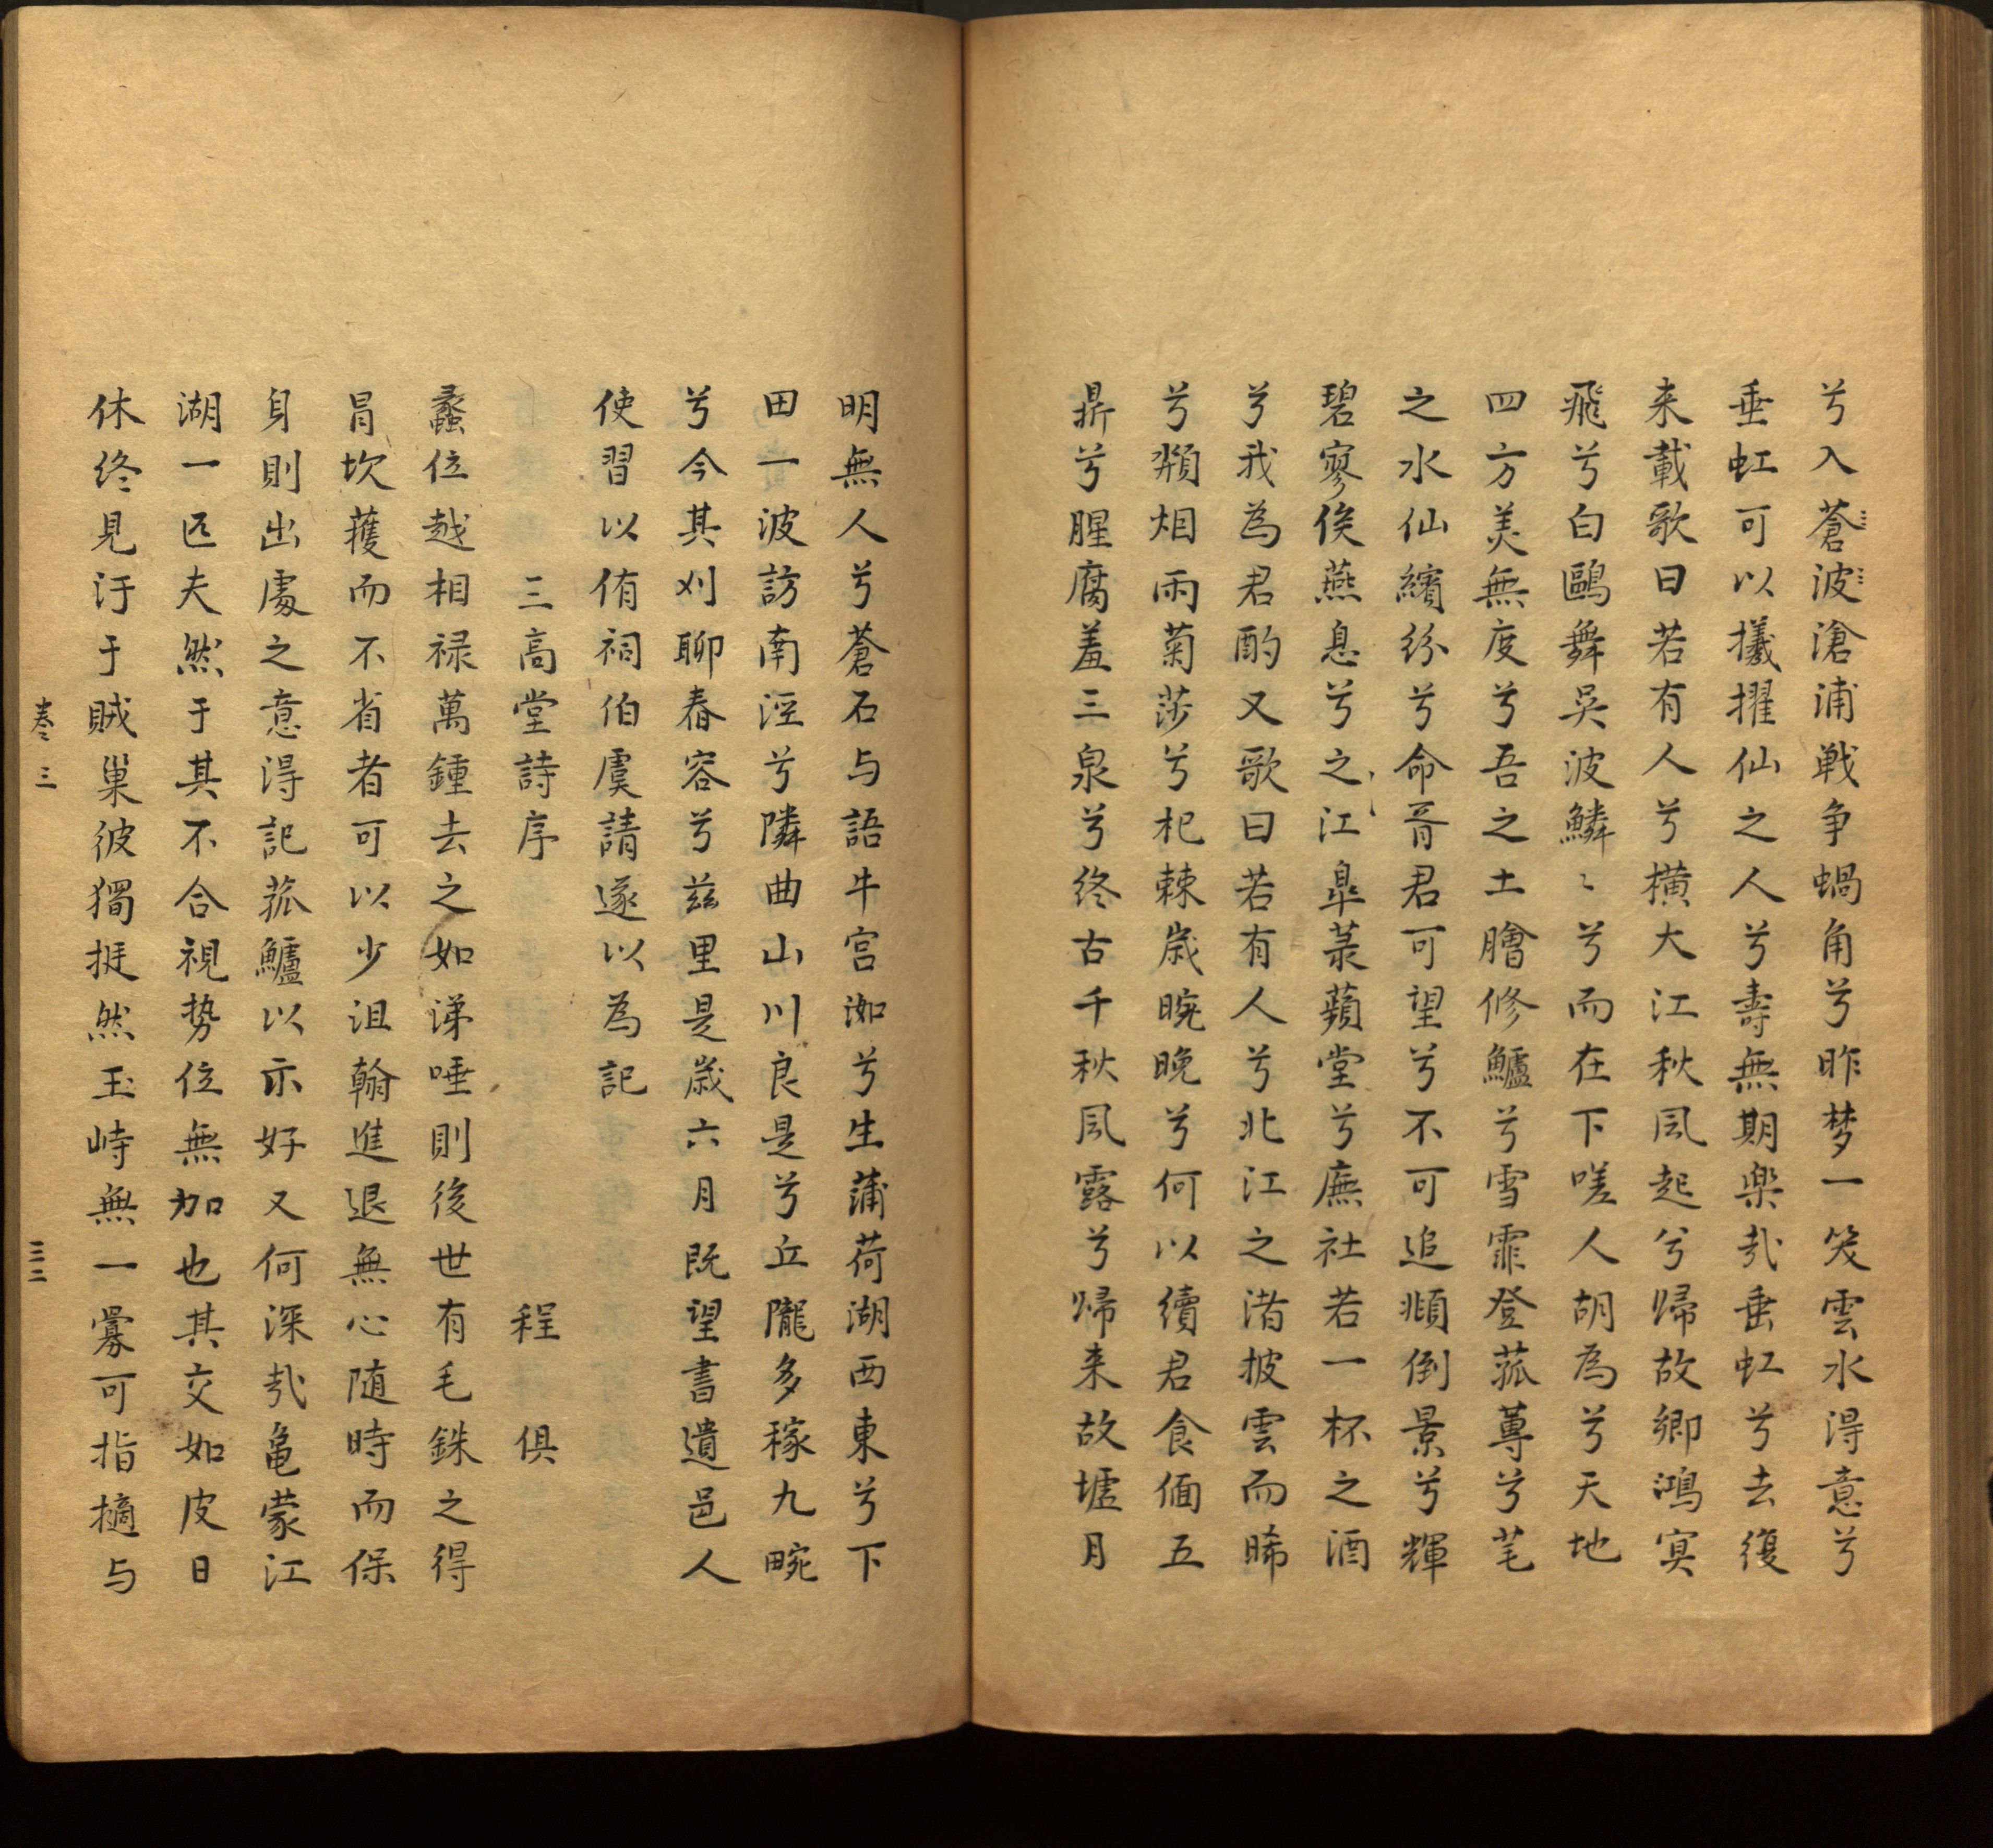 兮入蒼波滄浦戦争蝸角兮昨梦一笑雲水得意兮
垂虹可以檥擢仙之人兮壽無期楽㢤垂虹兮去復
来載歌曰若有人兮横大江秋風起兮歸故郷鴻寞
飛兮白鷗舞吳波鱗〻兮而在下嗟人胡為兮天地
四方美無度兮吾之土膾修鱸兮雪霏登菰蓴兮芼
之水仙繽紛兮命胥君可望兮不可追頫倒景兮輝
碧寥俟燕息兮之江皐菉蘋堂兮廡社若一杯之酒
兮我為君酌又歌曰若有人兮北江之渚披雲而晞
兮頮烟雨菊莎兮杞棘歳晼晚兮何以續君食偭五
鼎兮腥腐羞三泉兮終古千秋風露兮歸来故墟月
明無人兮蒼石与語牛宫洳兮生蒲荷湖西東兮下
田一波訪南涇兮隣曲山川良是兮丘隴多稼九畹
兮今其刈聊春容兮兹里是歳六月既望書遺邑人
使習以侑祠伯虞請遂以為記
三高堂詩序　程俱
蠡位越相禄萬鍾去之如涕唾則後世有毛銖之得
冒坎擭而不省者可以少沮翰進退無心随時而保
身則出處之意得記菰鱸以示好又何深㢤亀蒙江
湖一匹夫然于其不合視势位無加也其交如皮日
休终見汙于賊巢彼獨挺然玉峙無一釁可指摘与
卷三
三三